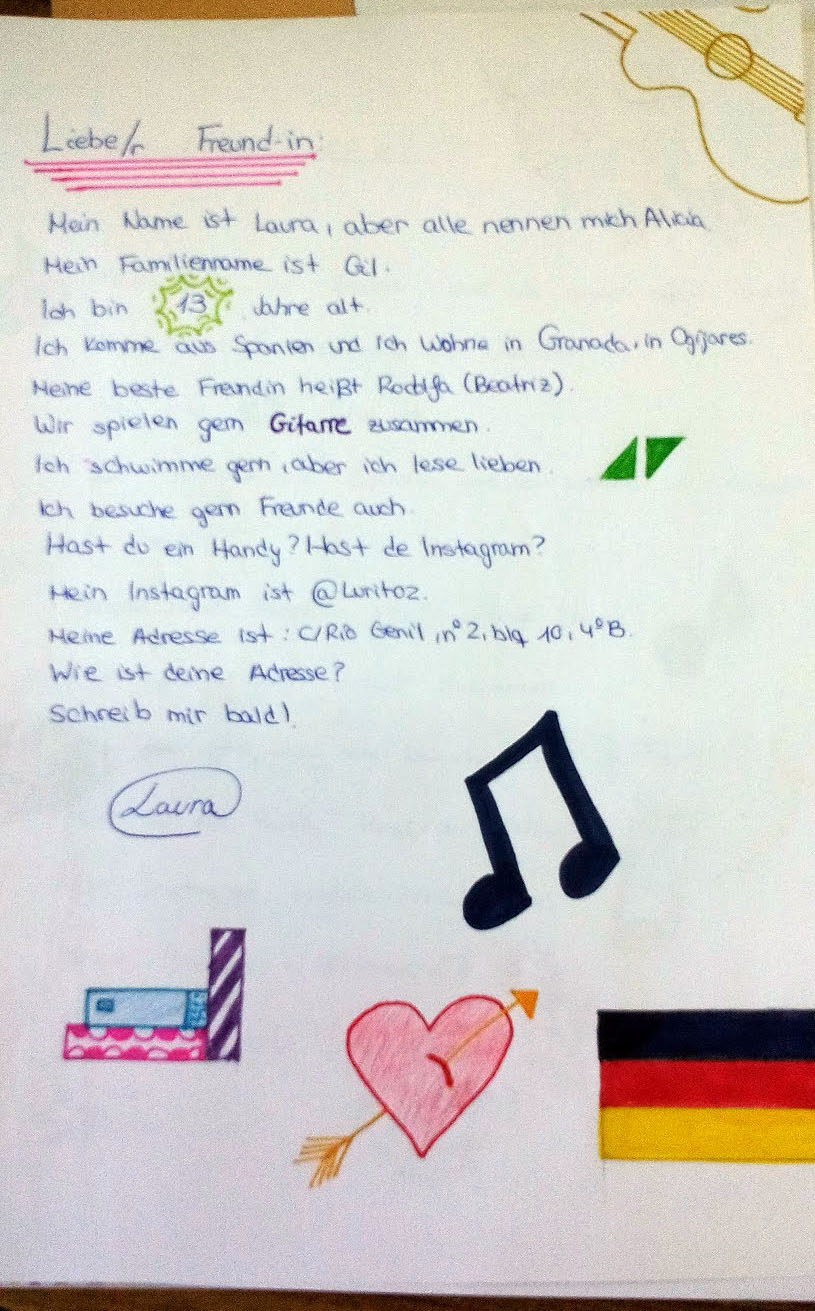 Liebe/r Freund-in:
Mein Name ist Laura, aber alle nennen mich Alicia
Mein Familienname ist Gil.
Ich bin 13 Jahre alt.
Ich komme aus Spanien und ich wohne in Granada, in Ogíjares.
Meine beste Freundin heißt (Beatriz).
Wir spielen gern Gitarre zusammen.
Ich schwimme gern, aber ich lese lieben.
Ich besuche gern Freunde auch.
Hast du ein Handy? Hast de Instagram?
Mein Instagram ist @Luritoz.
Meine Adresse ist: C/Río Genil, nº 2, blq 10, 4ºB.
Wie ist deine Adresse?
Schreib mir bald!
Laura